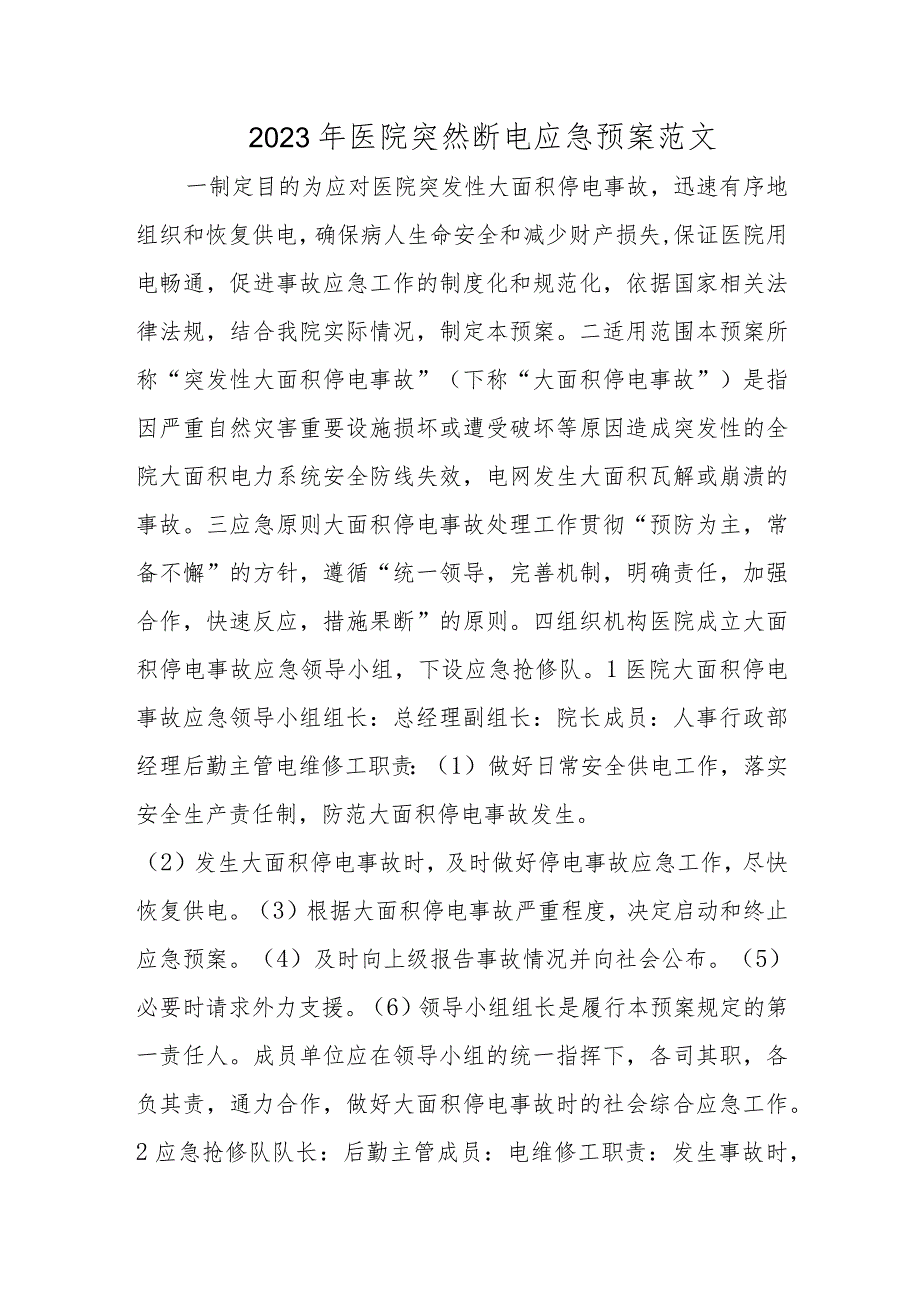 2023年医院突然断电应急预案范文
一制定目的为应对医院突发性大面积停电事故，迅速有序地
组织和恢复供电，确保病人生命安全和减少财产损失，保证医院用
电畅通，促进事故应急工作的制度化和规范化，依据国家相关法
律法规，结合我院实际情况，制定本预案。二适用范围本预案所
称“突发性大面积停电事故”（下称“大面积停电事故”）是指
因严重自然灾害重要设施损坏或遭受破坏等原因造成突发性的全
院大面积电力系统安全防线失效，电网发生大面积瓦解或崩溃的
事故。三应急原则大面积停电事故处理工作贯彻“预防为主，常
备不懈”的方针，遵循“统一领导，完善机制，明确责任，加强
合作，快速反应，措施果断”的原则。四组织机构医院成立大面
积停电事故应急领导小组，下设应急抢修队。1医院大面积停电
事故应急领导小组组长：总经理副组长：院长成员：人事行政部
经理后勤主管电维修工职责：（1）做好日常安全供电工作，落实
安全生产责任制，防范大面积停电事故发生。
（2）发生大面积停电事故时，及时做好停电事故应急工作，尽快
恢复供电。（3）根据大面积停电事故严重程度，决定启动和终止
应急预案。（4）及时向上级报告事故情况并向社会公布。（5）
必要时请求外力支援。（6）领导小组组长是履行本预案规定的第
一责任人。成员单位应在领导小组的统一指挥下，各司其职，各
负其责，通力合作，做好大面积停电事故时的社会综合应急工作。
2应急抢修队队长：后勤主管成员：电维修工职责：发生事故时，